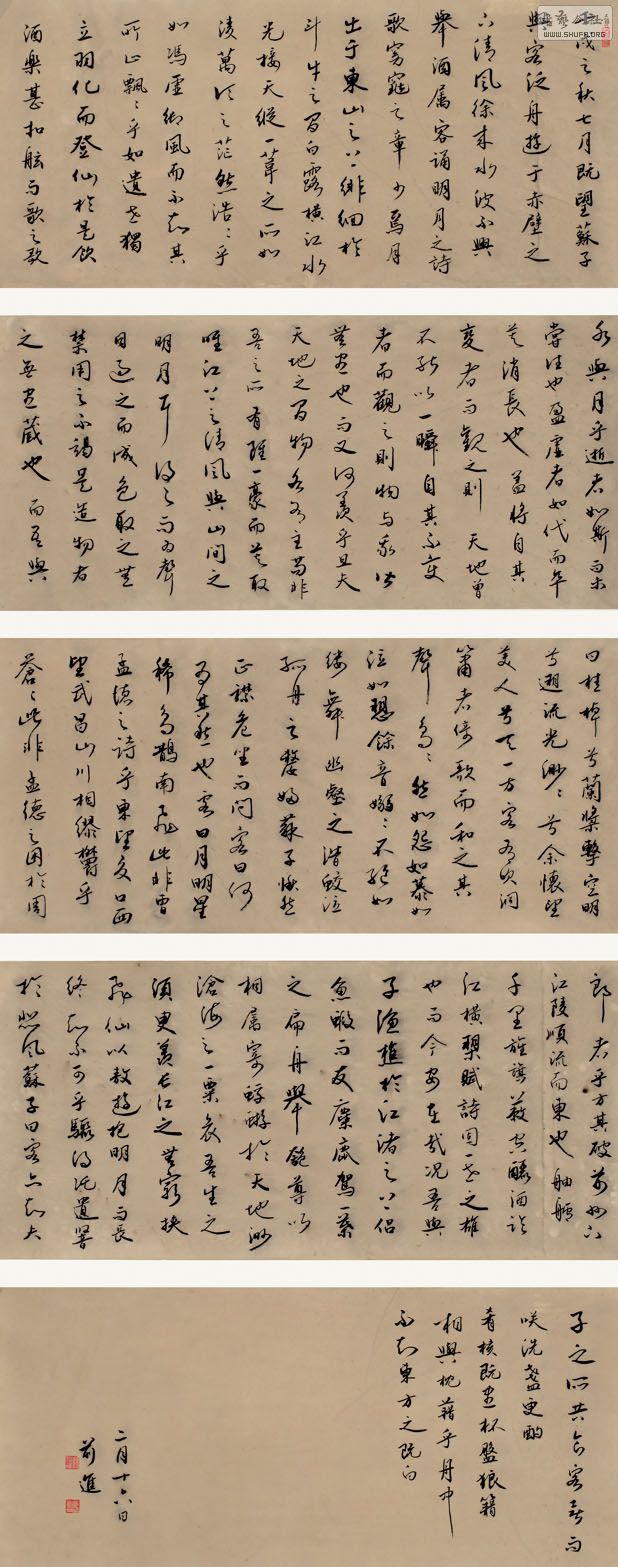 壬戌之秋七月既望蘇子
與客泛舟遊于赤壁之
下清風徐来水波不興
舉酒属客誦明月之詩
歌窈窕之章少焉月
出于東山之上徘徊於
斗牛之間白露橫江水
光接天縱一葦之所如
淩萬頃之茫然浩々乎
如馮虛御風而不知其
所止飄々乎如遺世獨
立羽化而登仙於是飲
酒樂甚扣舷而歌之歌
水與月乎逝者如斯而未
嘗往也盈虛者如代而卒
莫消長也蓋将自其
變者而觀之則天地曾
不能以一瞬自其不變
者而觀之則物与我皆
無盡也而又何羨乎且夫
天地之間物各有主苟非
吾之所有雖一豪而莫取
唯江上之清風與山間之
明月耳得之而為聲
目遇之而成色取之無
禁用之不竭是造物者
之無盡藏也而吾與
曰桂棹兮蘭槳擊空明
兮遡流光渺々兮余懷望
美人兮天一方客有吹洞
簫者倚歌而和之其
聲烏々然如怨如慕如
泣如愬餘音嫋々不絕如
縷舞幽壑之潛蛟泣
孤舟之嫠婦蘇子愀然
正襟危坐而問客曰何
為其然也客曰月明星
稀烏鵲南飛此非曹
孟德之詩乎東望夏口西
望武昌山川相繆欝乎
蒼々此非孟德之困於周
郎者乎方其破荊州下
江陵順流而東也舳艫
千里旌旗蔽空釃酒臨
江橫槊賦詩固一世之雄
也而今安在哉况吾與
子漁樵於江渚之上侶
魚蝦而友麋鹿駕一葉
之扁舟舉匏尊以
相属寄蜉蝣於天地渺
滄海之一粟哀吾生之
須臾羨長江之無窮挾
飛仙以敖遊抱明月而長
終知不可乎驟得託遺響
於悲風蘇子曰客亦知夫
子之所共食客喜而
咲洗盞更酌
肴核既盡杯盤狼籍
相與枕藉乎舟中
不知東方之既白
二月十六日
前進
WWW.SHUFA.ORG